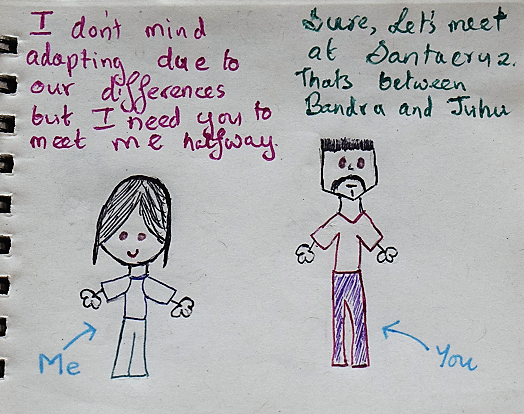 I don't mind
adapting due to
our differences
but I need you to
meet me halfway.
Sure, Let's meet
at Santacruz.
Thats between
Bandra and Juhu
Me
You